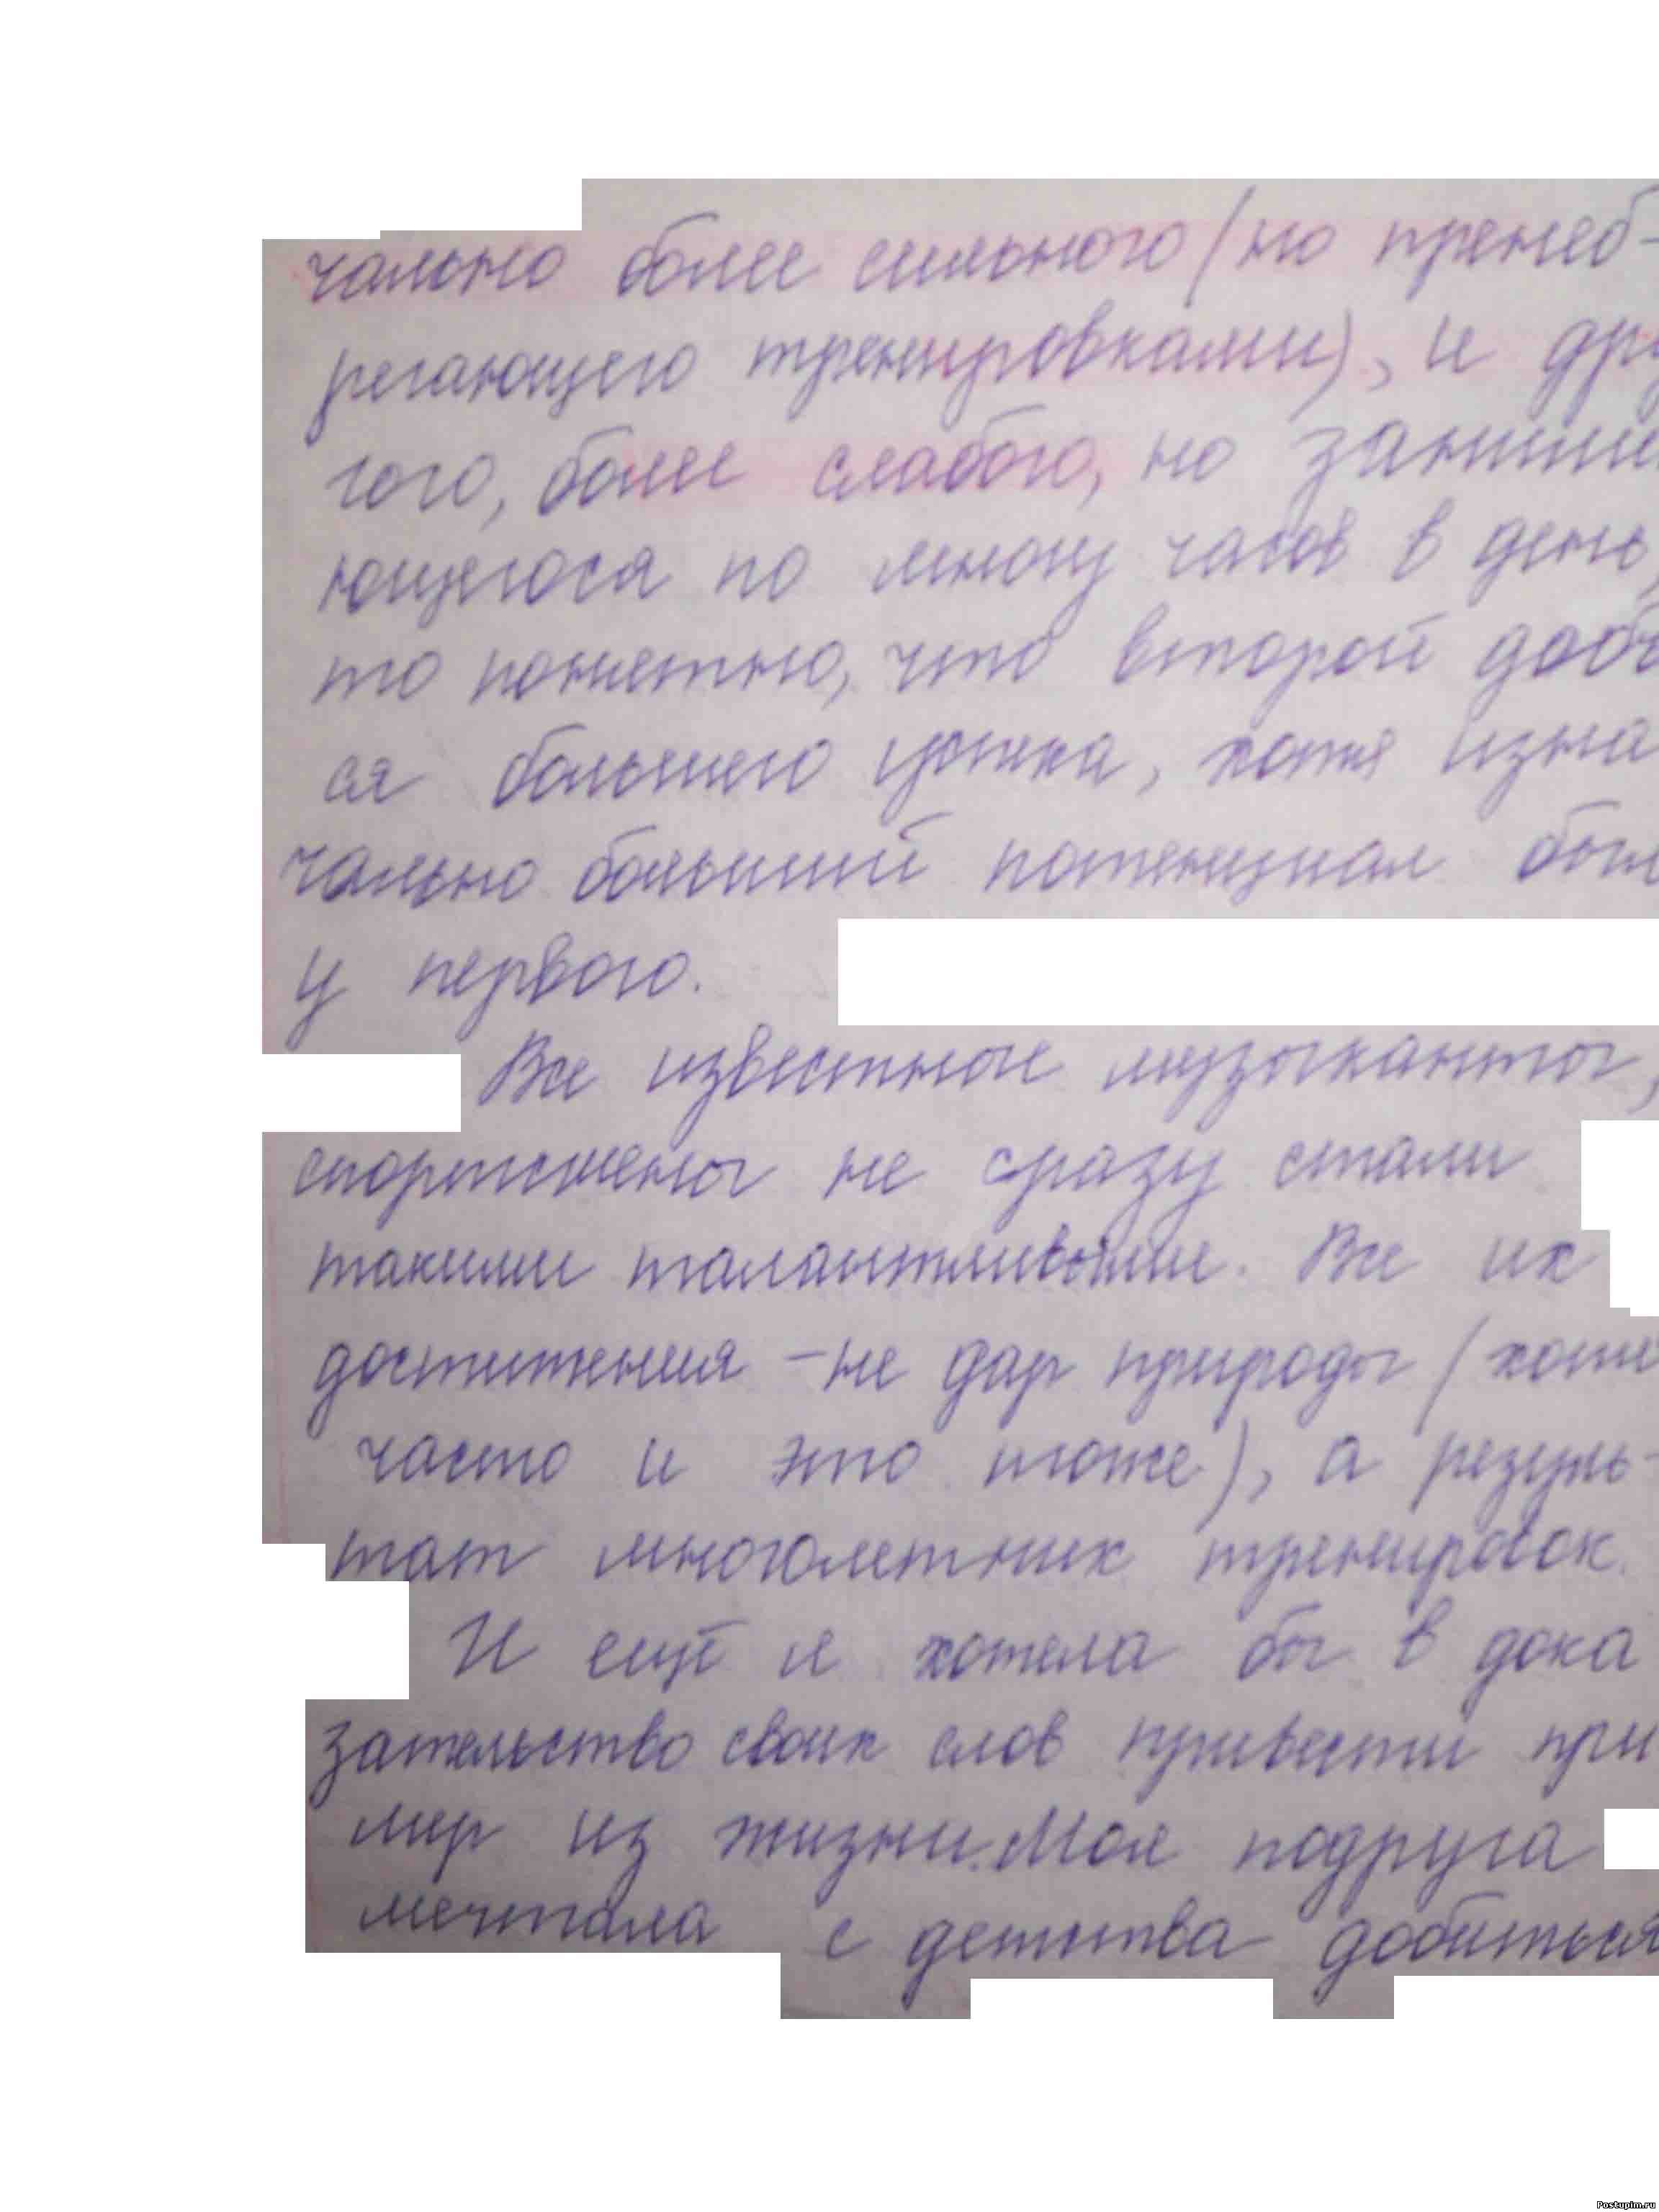 чально более сильного (но пренеб-
регающего тренировками), и дру
гого, более слабого, но занима
ющегося по многу часов в день,
то понятно, что второй доб
ся большего успеха, хотя изна
чально больший потенциал был
у первого.
Все известные музыканты,
спортсмены не сразу стали
такими талантливыми. Все их
достижения - не дар природы (хотя
часто и это тоже), а резуль-
тат многолетних тренировок.
И ещё я хотела бы в дока
зательство своих слов привести при
мер из жизни. Моя подруга
мечтала с детства добиться
Postupim.ru